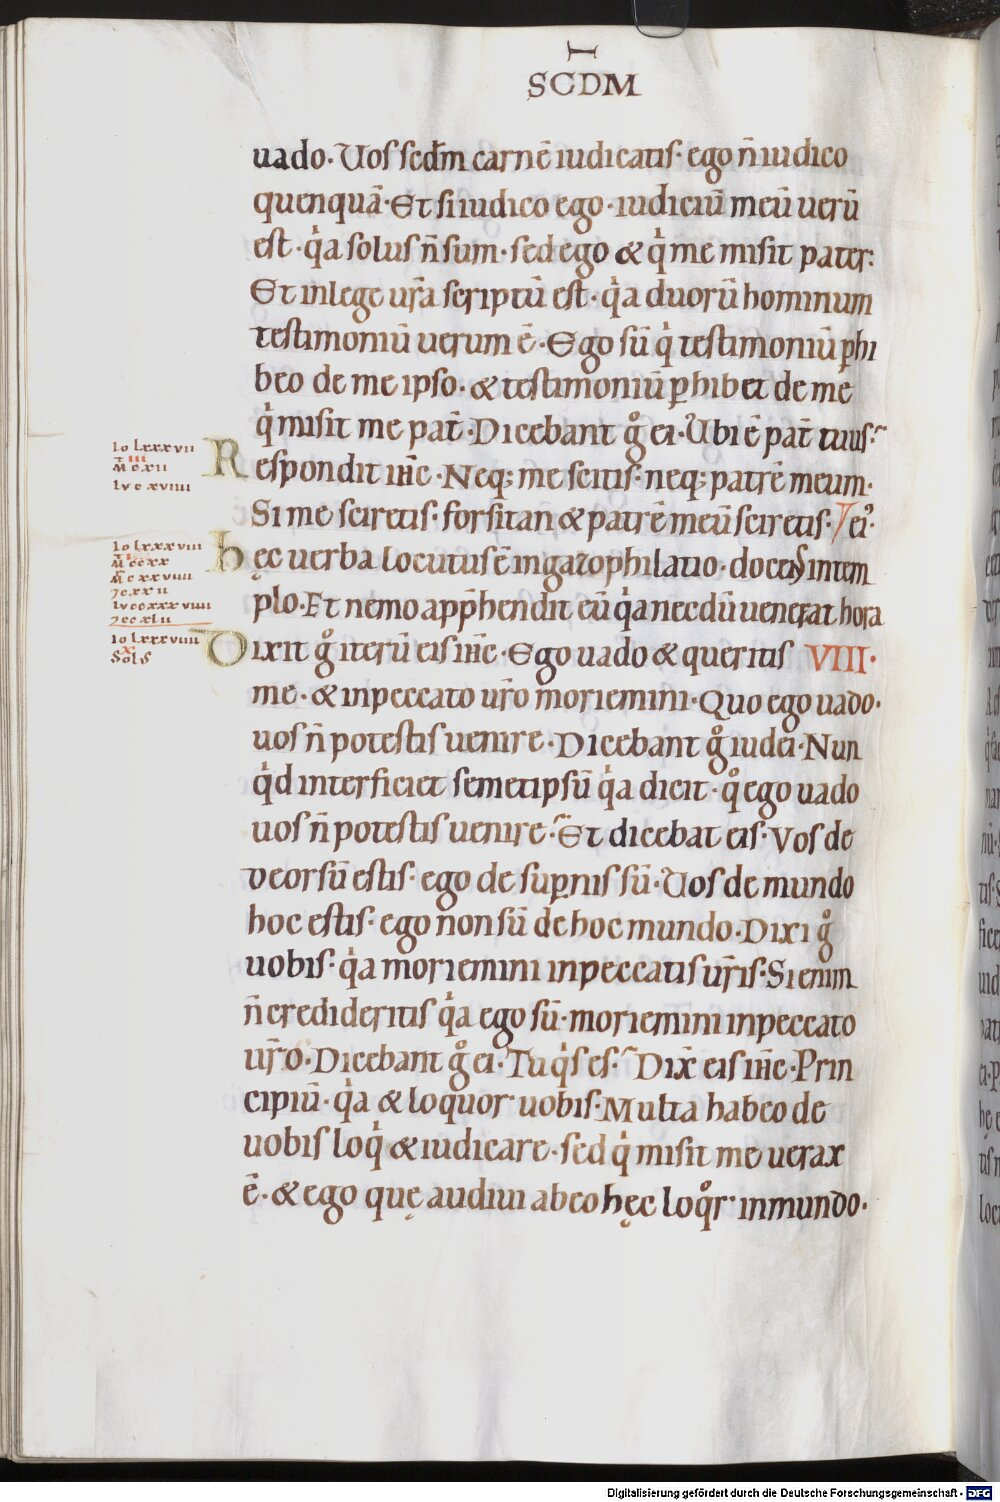 SCDM
uado· Uos scdm carnē iudicatis· ego ñ iudico
quenquā· Et si iudico ego· iudiciū meū uerū
est· qa solus ñ sum· sed ego & q me misit pater:
Et in lege ur̄a scriptū est· qa duorū hominum
testimoniū uerum ē· Ego sū q testimoniū phi
beo de me ipso· & testimoniū phibet de me
q misit me pat̄· Dicebant g ei· Ubi ē pat̄ tuus·
Io lxxxvii
M cxii
Lv cxviiii
Respondit ihc· Neq; me scitis· neq; patrē meum·
Si me sciretis· forsitan & patrē meū sciretis· ei·
Io lxxxviii
M ccxx
M cxxviiii
Lv ccxxxviiii
hęc uerba locutus ē in gazophilatio· docens in tem
plo· Et nemo appħendit eū qa necdū uenerat hora
Io lxxxviiii
Solus
Dixit g iterū eis ihc· Ego uado & queritis VIII·
me· & in peccato ur̄o moriemini· Quo ego uado·
uos ñ potestis uenire· Dicebant g iudei· Nun
qd interficiet semetipsū qa dicit· q ego uado
uos ñ potestis uenire· Et dicebat eis· Vos de
deorsū estis· ego de supnis sū· Uos de mundo
hoc estis· ego non sū de hoc mundo· Dixi g
uobis· qa moriemini in peccatis ur̄is: Si enim
ñ credideritis qa ego sū· moriemini in peccato
ur̄o· Dicebant g ei· Tu qs es· Dix̄ eis ihc· Prin
cipiū· qa & loquor uobis· Multa habeo de
uobis loq & iudicare· sed q misit me uerax
ē· & ego quę audiui ab eo hęc loqr in mundo·
Digitalisierung gefördert durch die Deutsche Forschungsgemeinschaft - DFG